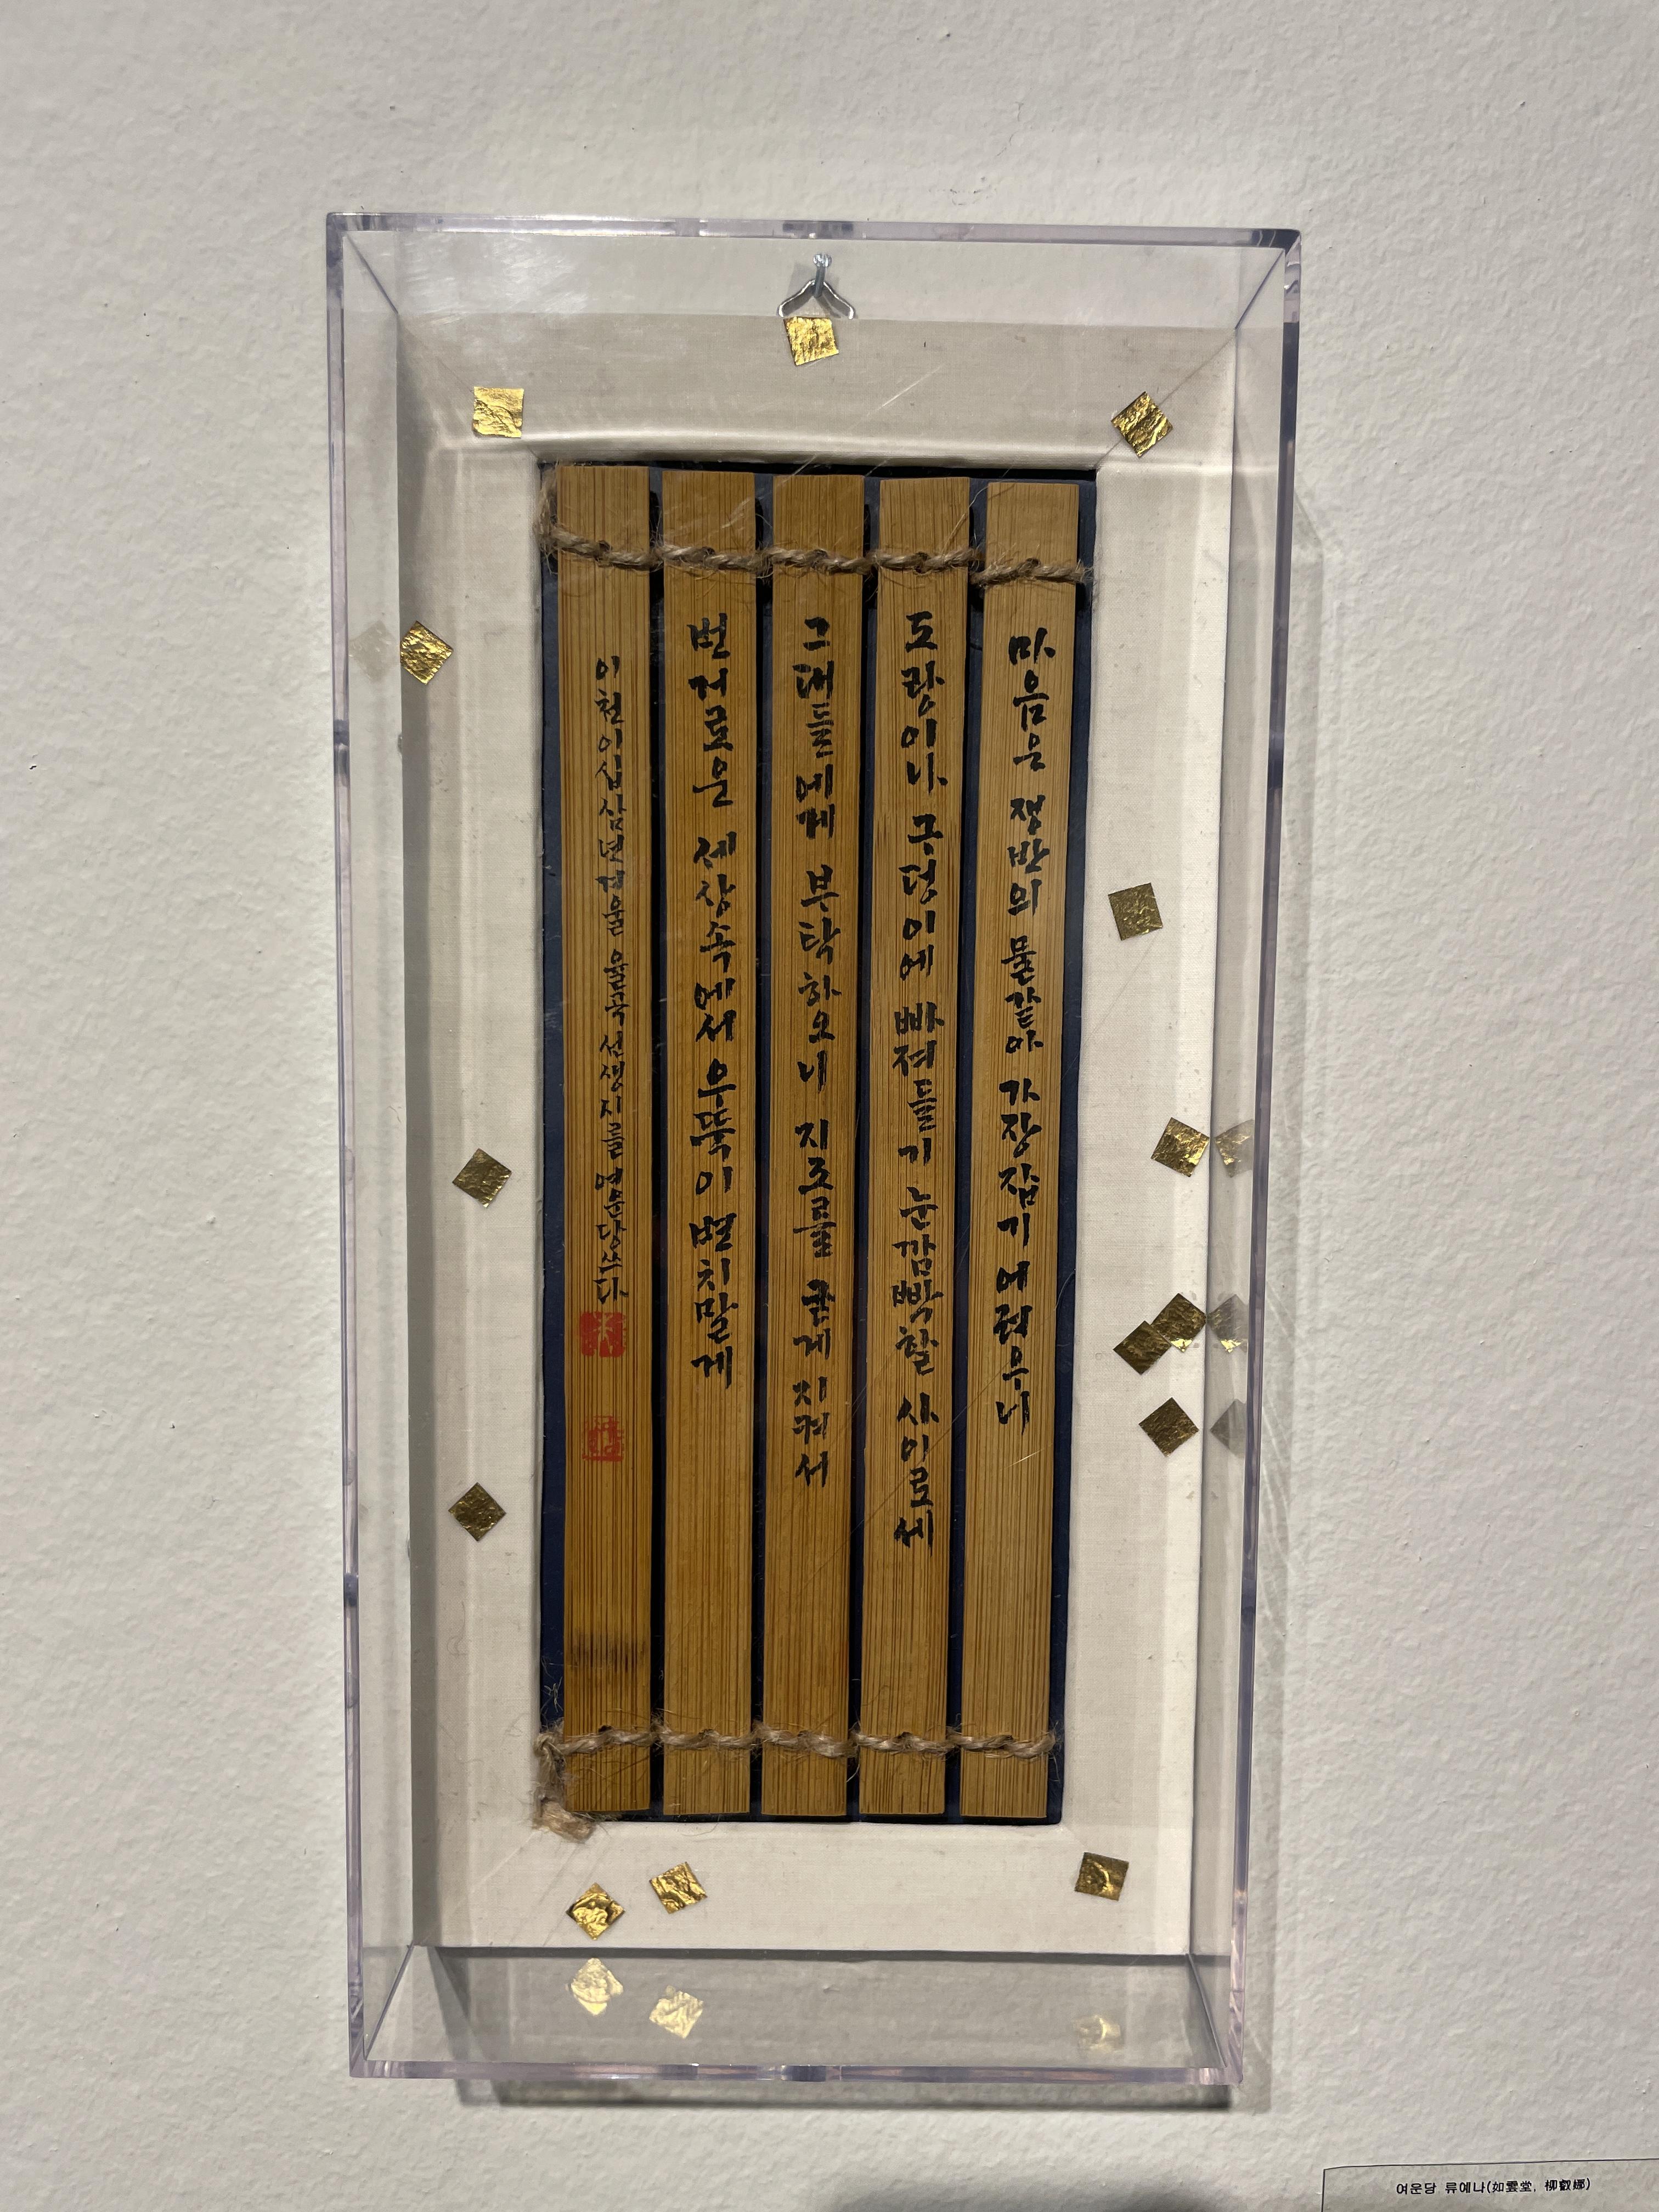 마음은 쟁반의 물같아 가장잡기 어려우니
도랑이나 구덩이에 빠져들기 눈깜빡할 사이로세
그대들에게 부탁하오니 지조를 굳게 지켜서
번거로운 세상속에서 우뚝이 변치말게
이천이십삼년겨울 율곡 선생 지를 여운당쓰다
여운당 류예나(如雲堂, 柳叡娜)